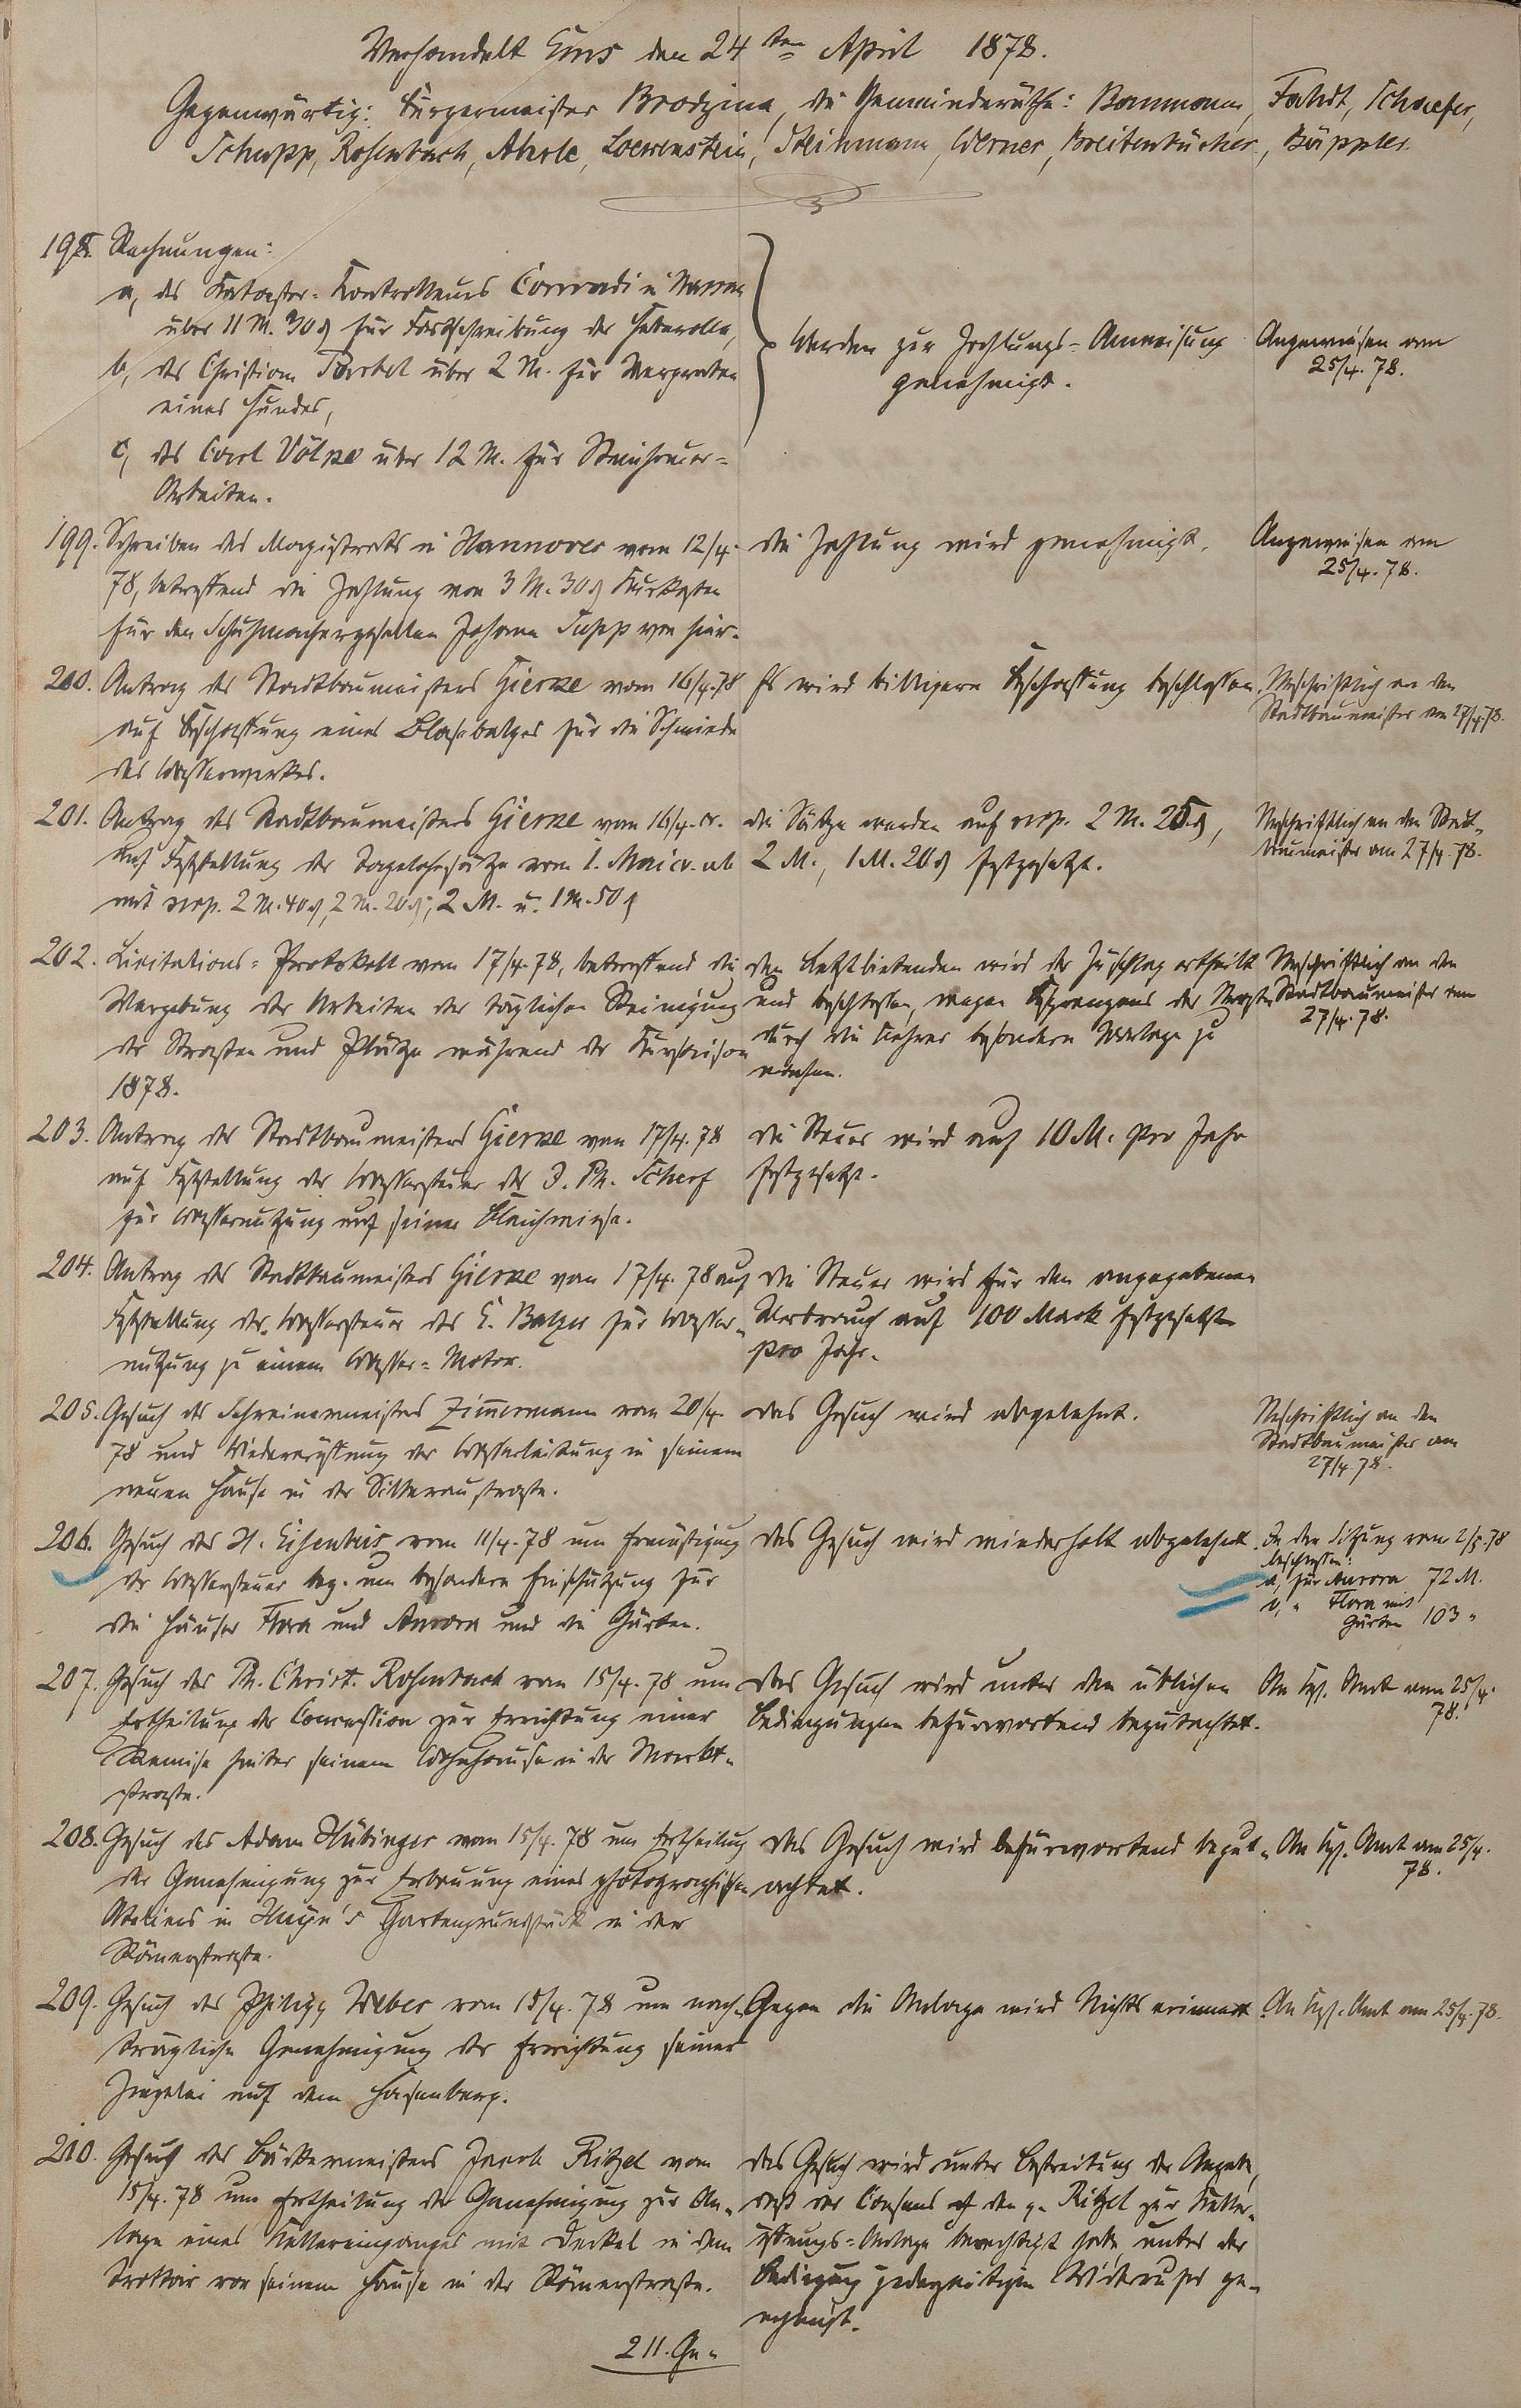 Verhandelt Ems den 24ten April 1878.
Gegenwärtig: Bürgermeister Brodzina, die Gemeinderäthe: Baumann, Fahdt, Schaefer,
Schupp, Rosenbach, Aberle, Loewenstein, Steinmann, Werner, Breitenbücher, Büppler.
198. Rechnungen:
a, des Kataster-Kontrolleurs Conradi in Nassau
über 11 M. 30 ₰ für Fortschreibung der Heberolle,
b, des Christian über 2 M. für Vergraben
eines Hundes,
c, des Carl Völpe über 12 M. für Steinhauer-
Arbeiten.
Werden zur Zahlungs-Anweisung
genehmigt.
Angewiesen am
25/4. 78.
199. Schreiben des Magistrats in Hannover vom 12/4.
78, betreffend die Zahlung von 3 M. 30 ₰ Kurkosten
für den Schuhmachergesellen Johann Supp von hier.
Die Zahlung wird genehmigt.
Angewiesen am
25/4. 78.
200. Antrag des Stadtbaumeisters Gierse vom 16/4. 78
auf Beschaffung eines Blasebalges für die Schmiede
des Wasserwerkes.
Es wird billigere Beschaffung beschlossen.
Abschriftlich an den
Stadtbaumeister am 27/4. 78.
201. Antrag des Stadtbaumeisters Gierse vom 16/4. cr.
auf Feststellung der Tagelohnsätze vom 1. Mai cr. ab
mit resp. 2 M. 40 ₰, 2 M. 20 ₰, 2 M. u. 1 M. 50 ₰
Die Sätze werden auf resp. 2 M. 25 ₰,
2 M., 1 M. 20 ₰ festgesetzt.
Abschriftlich an den Stadt-
baumeister am 27/4. 78.
202. Licitations-Protokoll vom 17/4. 78, betreffend die
Vergebung der Arbeiten der täglichen Reinigung
der Straßen und Plätze während der Kursaison
1878.
Den Letztbietenden wird der Zuschlag ertheilt
und beschlossen, wegen Besprengens der Straßen
durch die Kehrer besondere Vorlage zu
machen.
Abschriftlich an den
Stadtbaumeister am
27/4. 78.
203. Antrag des Stadtbaumeisters Gierse vom 17/4. 78
auf Feststellung der Wassersteuer des J. Ph. Scherf
für Wassernutzung auf seiner Bleichwiese.
Die Steuer wird auf 10 M. pro Jahr
festgesetzt.
204. Antrag des Stadtbaumeisters Gierse vom 17/4. 78 auf
Feststellung der Wassersteuer des C. Balzer für Wasser-
nutzung zu einem Wasser-Motor.
Die Steuer wird für den angegebenen
Verbrauch auf 100 Mark festgesetzt
pro Jahr.
205. Gesuch des Schreinermeisters Zimmermann vom 20/4.
78 und Wiedereröffnung der Wasserleitung in seinem
neuen Hause in der Silberaustraße.
Das Gesuch wird abgelehnt.
Abschriftlich an den
Stadtbaumeister am
27/4. 78.
206. Gesuch des H. Eisenbeis vom 11/4. 78 um Ermäßigung
der Wassersteuer bez. um besondere Einschätzung für
die Häuser Flora und Aurora und die Gärten.
Das Gesuch wird wiederholt abgelehnt.
In der Sitzung vom 2/5. 78
beschlossen:
a, für Aurora 72 M.
b, " Flora mit
Garten 103 "
207. Gesuch des Ph. Christ. Rosenbach vom 15/4. 78 um
Ertheilung der Concession zur Errichtung einer
Remise hinter seinem Wohnhause in der Markt-
straße.
Das Gesuch wird unter den üblichen
Bedingungen befürwortend begutachtet.
An Kgl. Amt am 25/4.
78.
208. Gesuch des Adam Hübinger vom 15/4. 78 um Ertheilung
der Genehmigung zur Erbauung eines photographischen
Ateliers in Heyn's Gartengrundstück in der
Römerstraße.
Das Gesuch wird befürwortend begut-
achtet.
An Kgl. Amt am 25/4.
78.
209. Gesuch des Philipp Weber vom 15/4. 78 um nach-
trägliche Genehmigung der Errichtung seiner
Ziegelei auf dem Hasenberg.
Gegen die Anlage wird Nichts erinnert.
An Kgl. Amt am 25/4. 78.
210. Gesuch des Bäckermeisters Jacob Ritzel vom
15/4. 78 um Ertheilung der Genehmigung zur An-
lage eines Kellereinganges mit Deckel in dem
Trottoir vor seinem Hause in der Römerstraße.
Das Gesuch wird unter Bestreitung der Angabe,
daß der Consens den p. Ritzel zur Keller-
öffnungs-Anlage berechtigt habe unter der
Bedingung jederzeitigen Widerrufes ge-
nehmigt.
211. Ge-